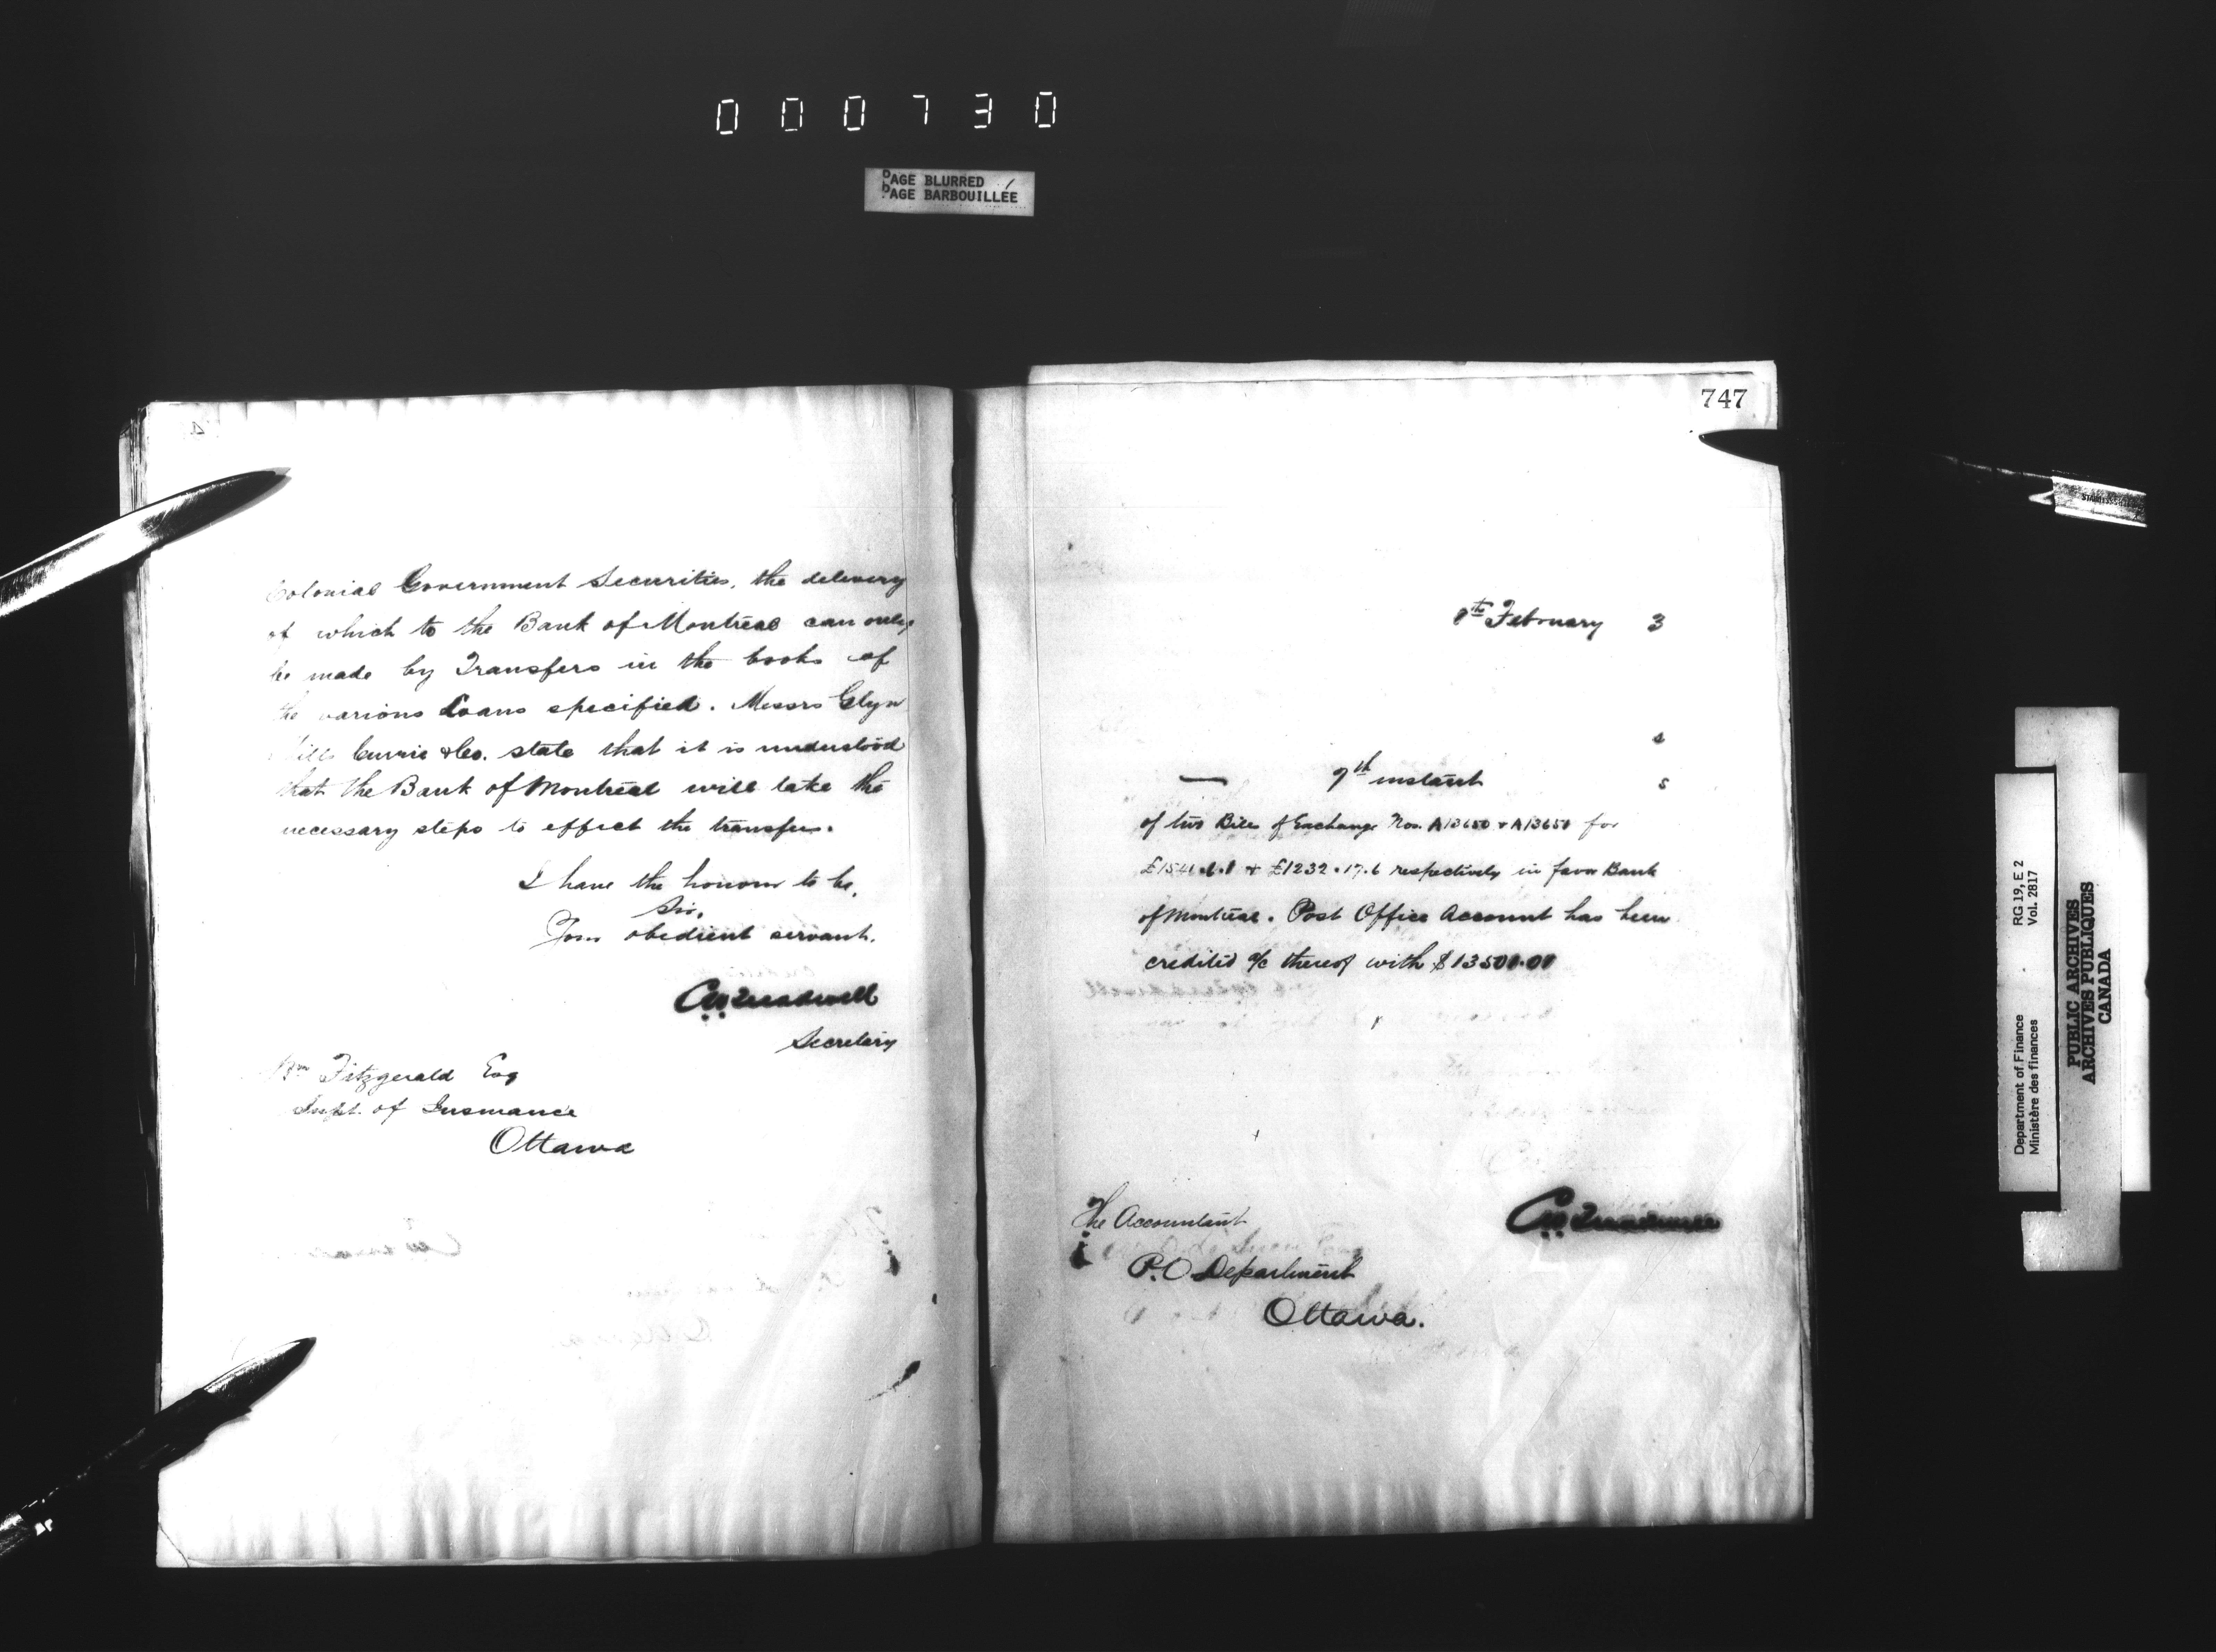 000730
PAGE BLURRED
PAGE BARBOUILLÉE
Colonial Government Securities, the delivery
of which to the Bank of Montreal can only
be made by Transfers in the books of
the various Loans specified. Messrs Glyn
Mills Currie & Co. state that it is understood
that the Bank of Montreal will take the
necessary steps to effect the transfer.
I have the honour to be,
Sir,
Your obedient servant.
Secretary
Fitzgerald Esq
Supt. of Insurance
Ottawa
747
8th February 3
s
7th instant s
of two Bills of Exchange Nos. A13650 & A13651 for
& £1232.17.6 respectively in favor Bank
of Montreal. Post Office Account has been
credited a/c thereof with
The Accountant
P.O Department
Ottawa.
Department of Finance RG 19, E 2
Ministère des finances Vol. 2817
PUBLIC ARCHIVES
ARCHIVES PUBLIQUES
CANADA